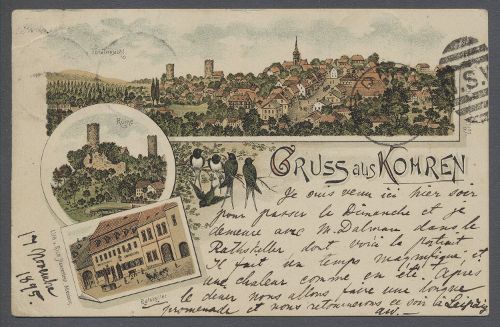 Totalansicht
Ruine
GRUSS aus KOHREN
Je suis venu ici hier soir
pour passer le Dimanche et je
demeure avec M. Dalviau dans le
Rathskeller dont voici le portrait
Il fait un temps magnifique et
une chaleur comme en été. Après
le diner nous allons faire une longue
promenade et nous retournerons ce soir à Leipzig
17 Novembre
1895.
Ratskeller